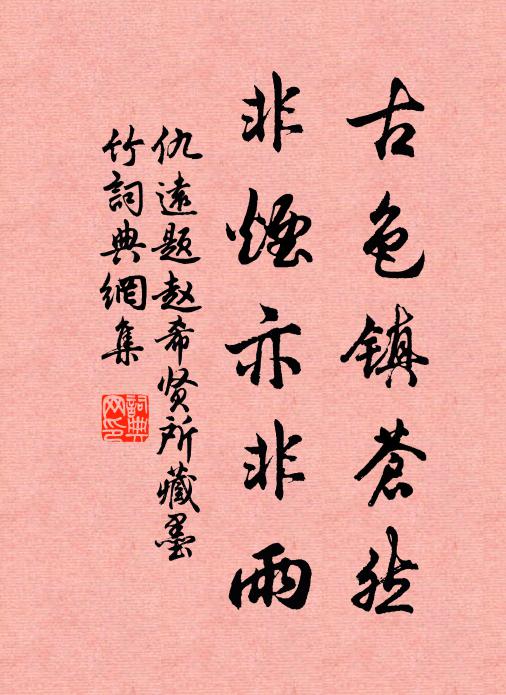 古色镇苍然
非煙亦非雨
仇遠题赵希贤所藏墨
竹詞典網集
詞典
网印